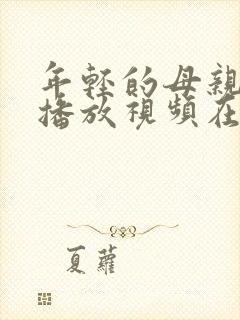 年輕的母親
播放視頻在
夏蘿